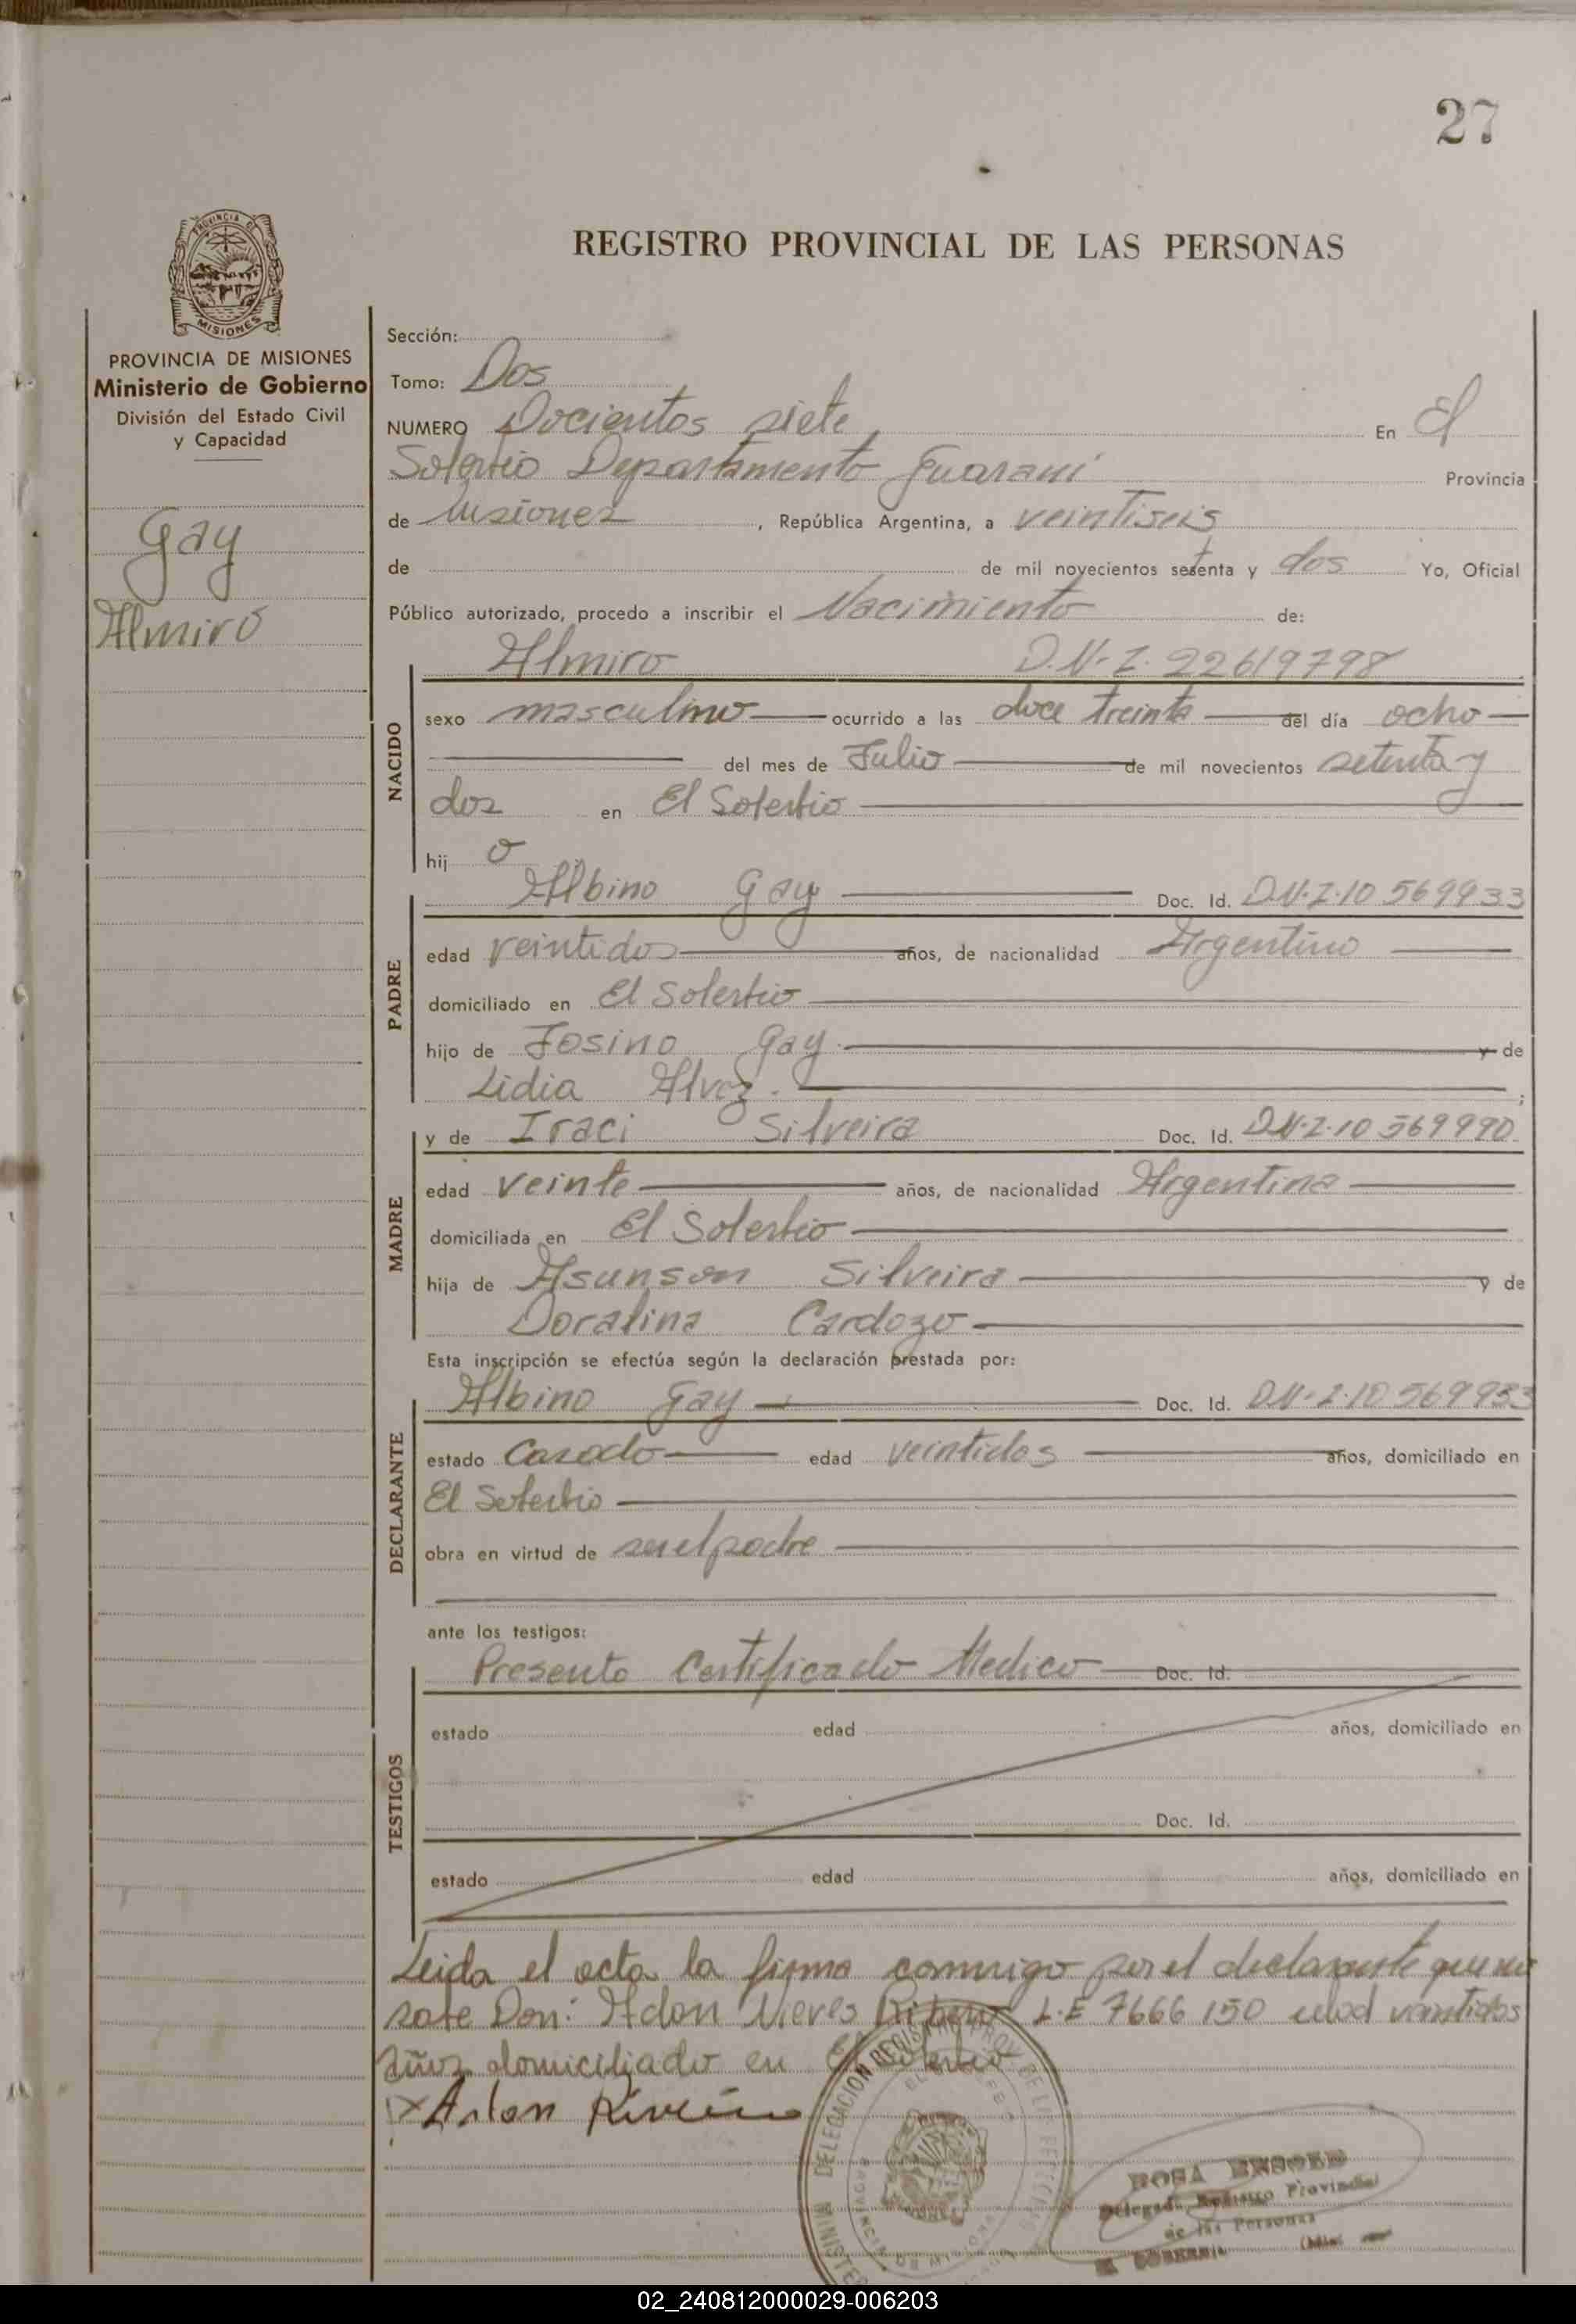 27
REGISTRO PROVINCIAL DE LAS PERSONAS
PROVINCIA DE
MISIONES
PROVINCIA DE MISIONES
Ministerio de Gobierno
División del Estado Civil
y Capacidad
Gay
Almiro
Sección:
Tomo: Dos
NUMERO Docientos siete En El
Soberbio Departamento Guarani Provincia
de Misiones, República Argentina, a veintiseis
de de mil novecientos setenta y dos Yo, Oficial
Público autorizado, procedo a inscribir el Nacimiento de:
Almiro D.N.I. 22619798
NACIDO
sexo masculino ocurrido a las doce treinta del día ocho
del mes de Julio de mil novecientos setenta y
dos en El Soberbio
hij o
PADRE
Albino Gay Doc. Id. D.N.I. 10 569933
edad veintidos años, de nacionalidad Argentino
domiciliado en El Soberbio
hijo de Josino Gay y de
Lidia Alvez. ;
MADRE
y de Iraci Silveira Doc. Id. D.N.I. 10 569990
edad veinte años, de nacionalidad Argentina
domiciliada en El Soberbio
hija de Asunson Silveira y de
Doralina Cardozo
Esta inscripción se efectúa según la declaración prestada por:
DECLARANTE
Albino Gay Doc. Id. D.N.I. 10 569933
estado Casado edad veintidos años, domiciliado en
El Soberbio
obra en virtud de ser el padre
ante los testigos:
TESTIGOS
Presento Certificado Medico Doc. Id.
estado edad años, domiciliado en
Doc. Id.
estado edad años, domiciliado en
Leida el acta la firma conmigo por el declarante que no
sabe Don: Adon Nieves L.E 7666 150 edad veintidos
años domiciliado en El Soberbio
DELEGACION REGISTRO PROV. DE LAS PERSONAS
PROVINCIA DE MISIONES
ROSA
Delegada Registro Provincial
de las Personas
02_240812000029-006203